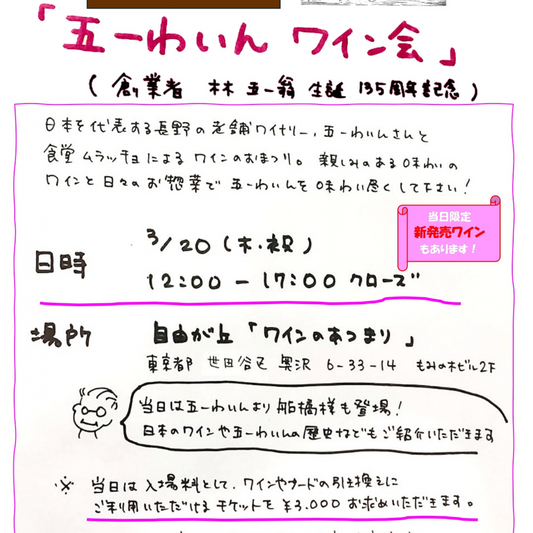 「五一わいん ワイン会」
(創業者 林 五一翁 生誕 135周年記念)
日本を代表する長野の老舗ワイナリー、五一わいんさんと
食堂ムラッチョによる ワインのおまつり。親しみのある味わいの
ワインと日々のお惣菜で 五一わいんを味わい尽くして下さい!
当日限定
新発売ワイン
もあります!
日時 3/20(木・祝)
12:00-17:00 クローズ
場所 自由が丘「ワインのあつまり」
東京都 世田谷区 奥沢 6-33-14 もみの木ビル2F
当日は五一わいんより 船橋様も登場!
日本のワインや五一わいんの歴史などもご紹介いただきます
※ 当日は入場料として、ワインやフードの引き換えに
ご利用いただけるチケットを¥3,000お求めいただきます。